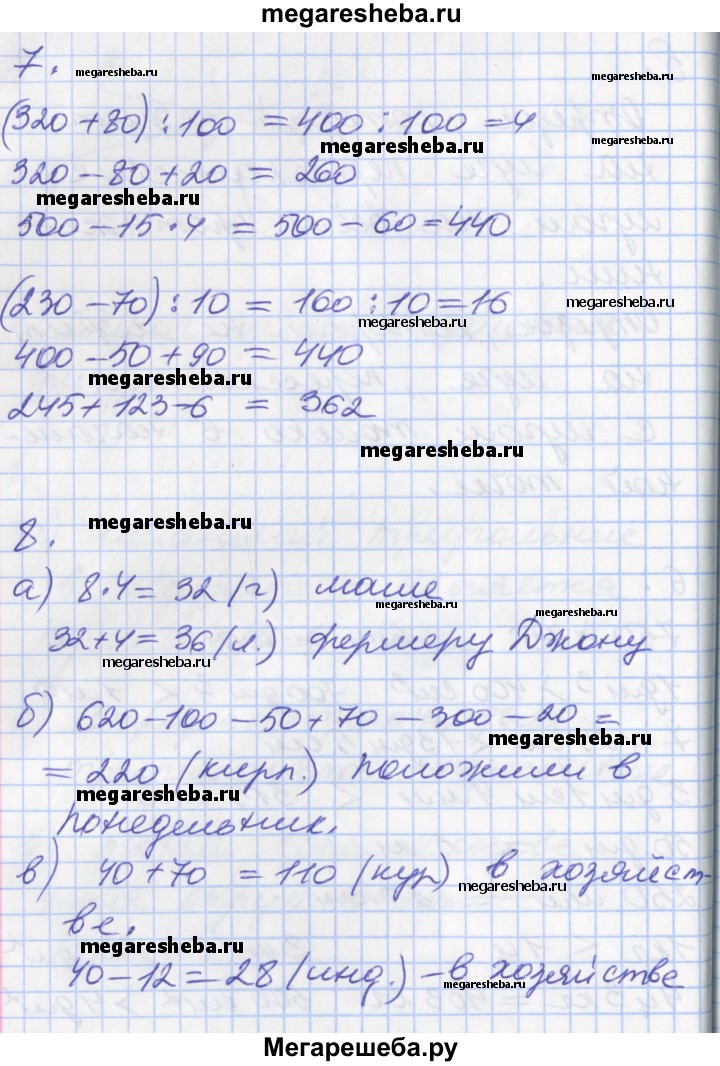 megaresheba.ru
7.
megaresheba.ru megaresheba.ru
(320+80):100 =400:100=4
megaresheba.ru
320-80+20 = 260
megaresheba.ru megaresheba.ru
500-15·4 = 500-60=440
(230-70):10 = 160:10=16
megaresheba.ru
megaresheba.ru
400-50+90 = 440
megaresheba.ru
245+123-6 = 362
megaresheba.ru
megaresheba.ru
8.
а) 8·4= 32 (г) маше
megaresheba.ru
megaresheba.ru
32+4= 36 (л.) фермеру Джону
megaresheba.ru
б) 620-100-50+70-300-20=
megaresheba.ru
= 220 (кирп.) положили в
megaresheba.ru
понедельник.
в) 40+70 = 110 (кур) в хозяйст-
megaresheba.ru
ве.
megaresheba.ru
40-12=28 (инд.) - в хозяйстве
megaresheba.ru
Мегарешеба.ру